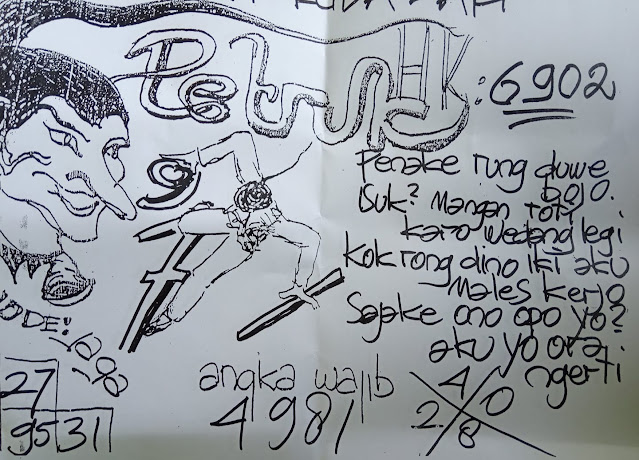 Petruk
HK: 6902
97
Penake rung duwe
bojo.
isuk? Mangan roti
karo wedang legi
Kok rong dino iki aku
Males kerjo
Sajake ono opo yo?
aku yo ora
ngerti
KODE! Jaga
27
95 31
angka wajib
4981
4
2 0
8